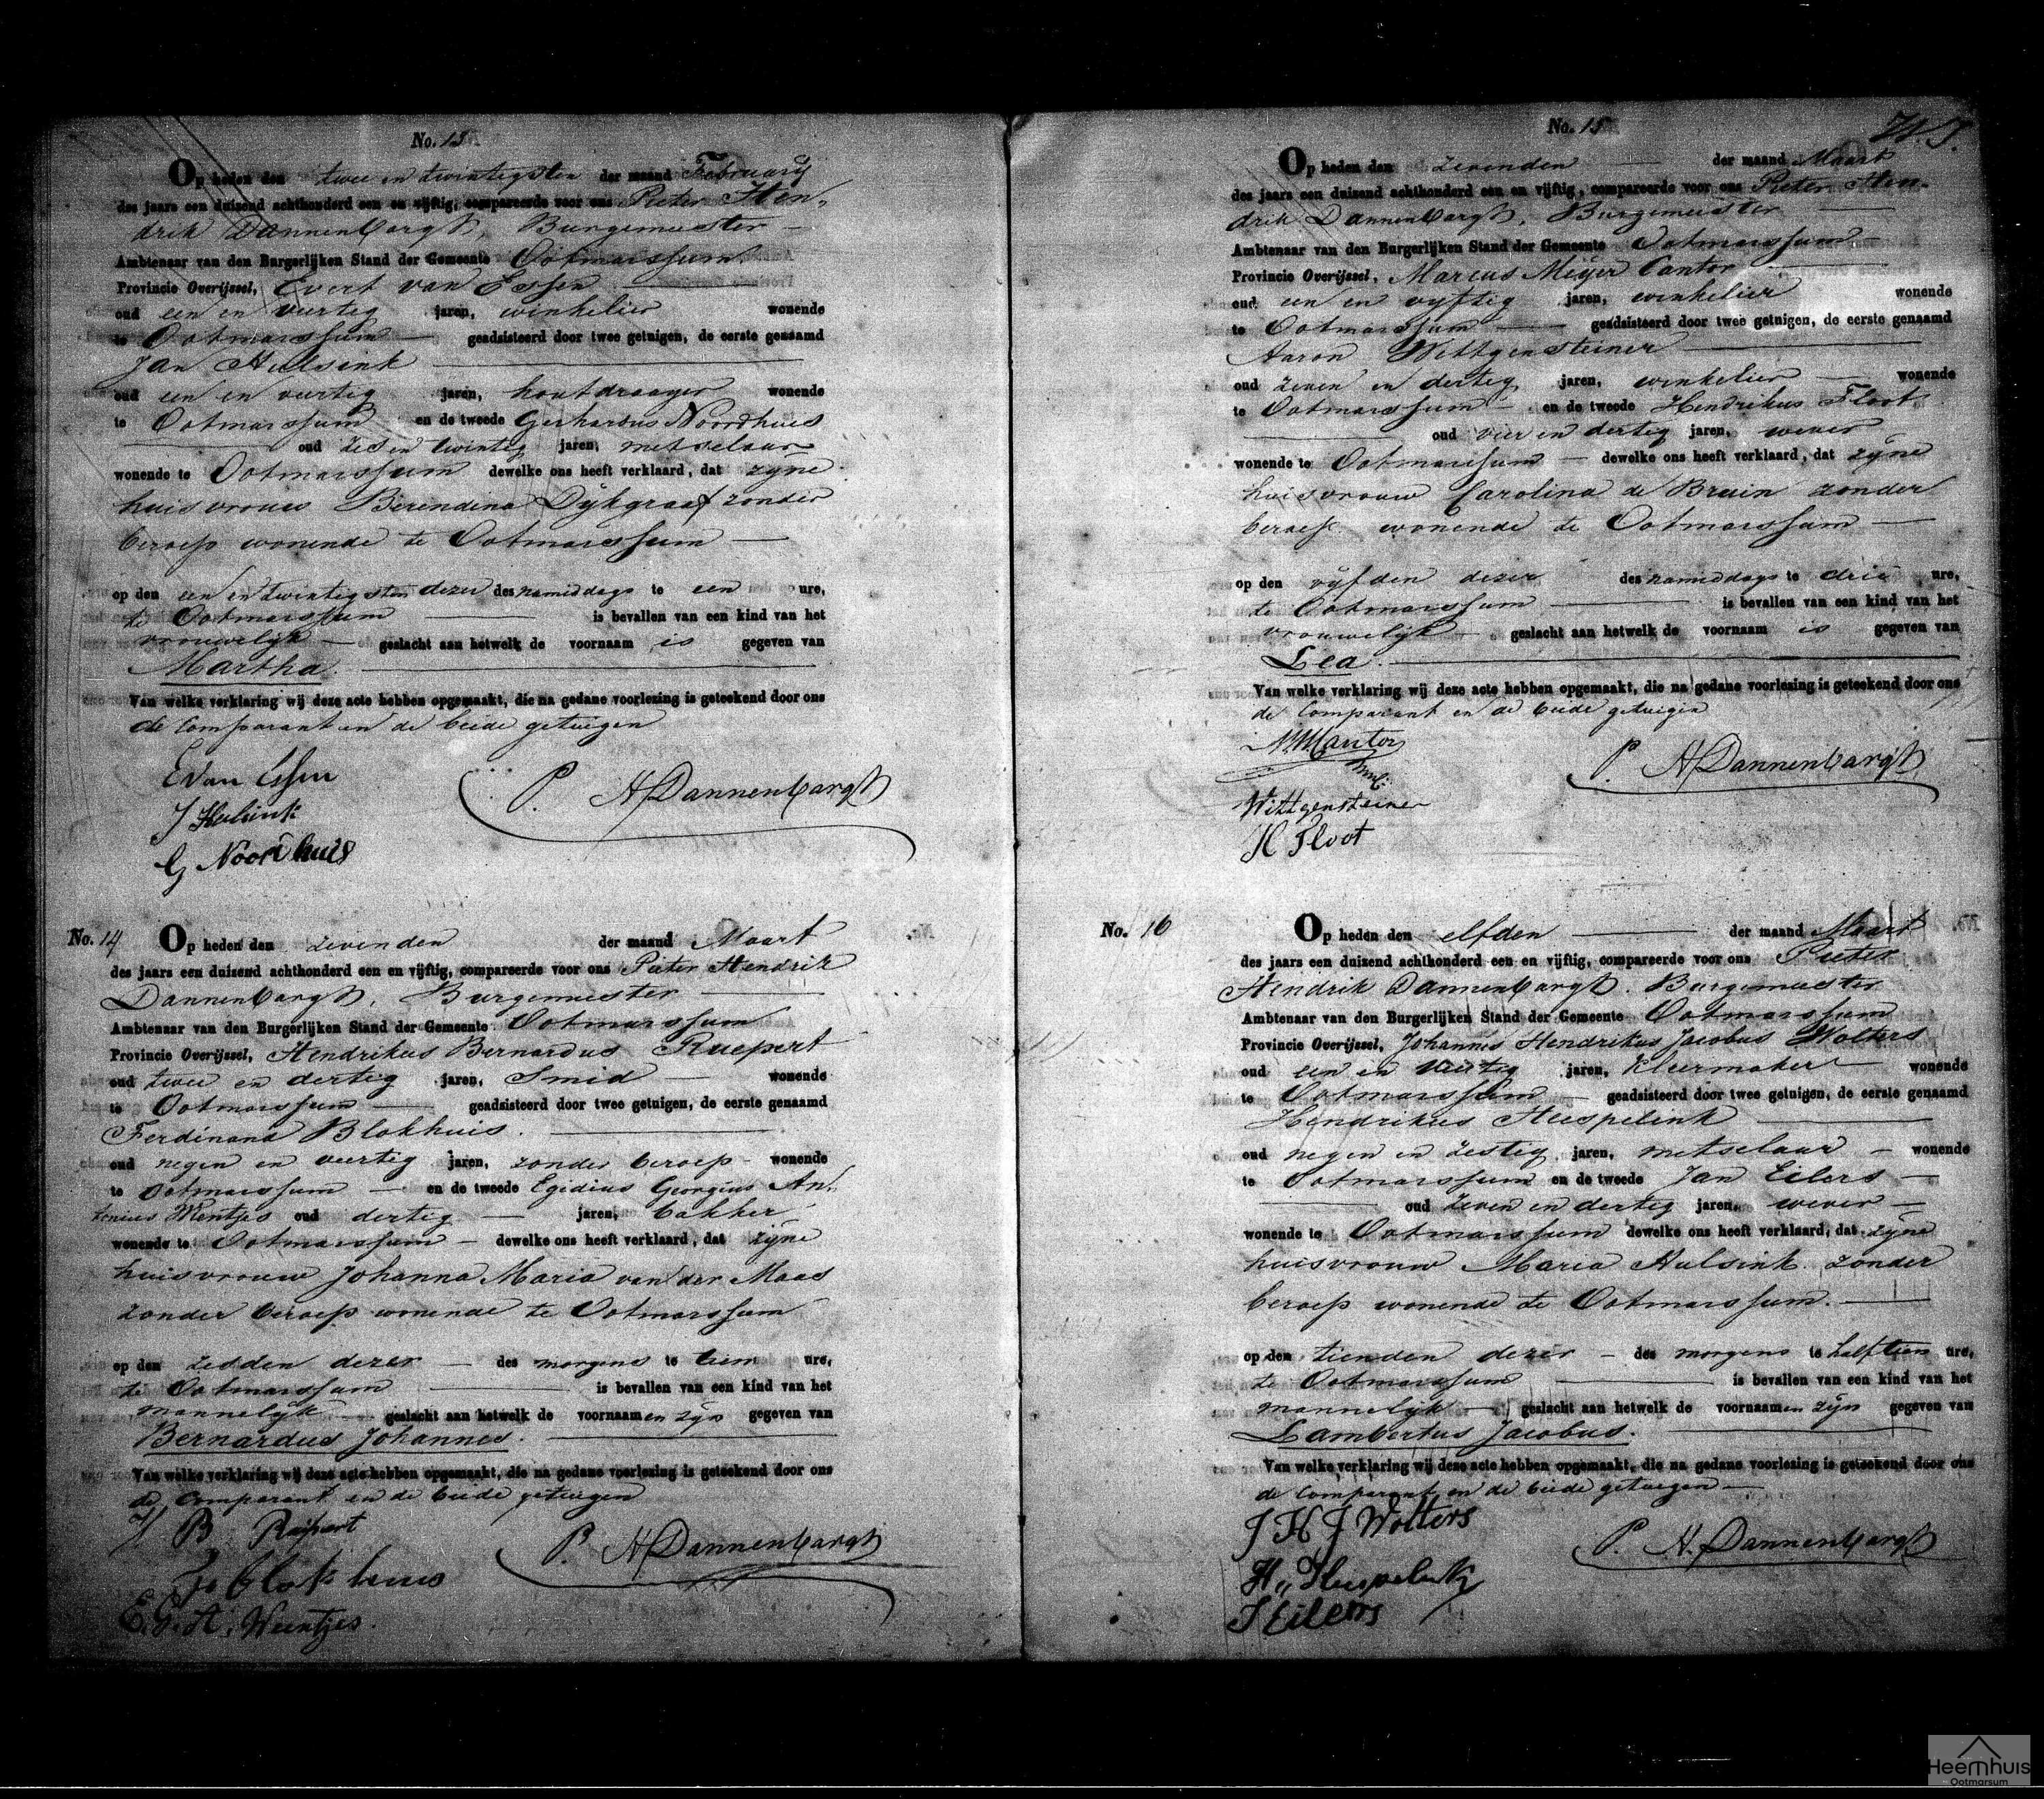 No. 13
Op heden den twee en twintigsten der maand February
des jaars een duizend achthonderd een en vijftig, compareerde voor ons Pieter Hen-
drik Dannenbargh, Burgemeester
Ambtenaar van den Burgerlijken Stand der Gemeente Ootmarssum
Provincie Overijssel, Evert van Essen
oud een en veertig jaren, winkelier wonende
te Ootmarssum geadsisteerd door twee getuigen, de eerste genaamd
Jan Hulsink
oud een en veertig jaren, houtdraager wonende
te Ootmarssum en de tweede Gerhardus Noordhuis
oud zes en twintig jaren, metselaar
wonende te Ootmarssum dewelke ons heeft verklaard, dat zijne
huisvrouw Berendina Dijkgraaf zonder
beroep wonende te Ootmarssum
op den een en twintigsten dezer des namiddags te een ure,
te Ootmarssum is bevallen van een kind van het
vrouwelijk geslacht aan hetwelk de voornaam is gegeven van
Martha.
Van welke verklaring wij deze acte hebben opgemaakt, die na gedane voorlezing is geteekend door ons
de Comparant en de beide getuigen
E van Essen
J Hulsink
G Noordhuis
P. H Dannenbargh
No. 14
Op heden den zevenden der maand Maart
des jaars een duizend achthonderd een en vijftig, compareerde voor ons Pieter Hendrik
Dannenbargh, Burgemeester
Ambtenaar van den Burgerlijken Stand der Gemeente Ootmarssum
Provincie Overijssel, Hendrikus Bernardus Ruepert
oud twee en dertig jaren, Smid wonende
te Ootmarssum geadsisteerd door twee getuigen, de eerste genaamd
Ferdinand Blokhuis.
oud negen en veertig jaren, zonder beroep wonende
te Ootmarssum en de tweede Egidius Georgius An-
tonius Wentjes oud dertig jaren, bakker
wonende te Ootmarssum dewelke ons heeft verklaard, dat zijne
huisvrouw Johanna Maria van der Maas
zonder beroep wonende te Ootmarssum
op den zesden dezer des morgens te tien ure,
te Ootmarssum is bevallen van een kind van het
mannelijk geslacht aan hetwelk de voornaamen zijn gegeven van
Bernardus Johannes.
Van welke verklaring wij deze acte hebben opgemaakt, die na gedane voorlezing is geteekend door ons
de Comparant en de beide getuigen
H B Ruipert
F Blokhuis
E. G. A. Weentjes
P. H Dannenbargh
No. 15
Op heden den zevenden der maand Maart
des jaars een duizend achthonderd een en vijftig, compareerde voor ons Pieter Hen-
drik Dannenbargh, Burgemeester
Ambtenaar van den Burgerlijken Stand der Gemeente Ootmarssum
Provincie Overijssel, Marcus Meijer Cantor
oud een en vyftig jaren, winkelier wonende
te Ootmarssum geadsisteerd door twee getuigen, de eerste genaamd
Aaron Wittgensteiner
oud zeven en dertig jaren, winkelier wonende
te Ootmarssum en de tweede Hendrikus Floot
oud vier en dertig jaren, wever
wonende te Ootmarssum dewelke ons heeft verklaard, dat zijne
huisvrouw Carolina de Bruin zonder
beroep wonende te Ootmarssum
op den vijfden dezer des namiddags te drie ure,
te Ootmarssum is bevallen van een kind van het
vrouwelijk geslacht aan hetwelk de voornaam is gegeven van
Lea.
Van welke verklaring wij deze acte hebben opgemaakt, die na gedane voorlezing is geteekend door ons
de Comparant en de beide getuigen
MMCantor
Wittgensteiner
H Floot
P. H Dannenbargh
No. 16
Op heden den elfden der maand Maart
des jaars een duizend achthonderd een en vijftig, compareerde voor ons Pieter
Hendrik Dannenbargh. Burgemeester
Ambtenaar van den Burgerlijken Stand der Gemeente Ootmarssum
Provincie Overijssel, Johannes Hendrikus Jacobus Wolters
oud een en veertig jaren, kleermaker wonende
te Ootmarssum geadsisteerd door twee getuigen, de eerste genaamd
Hendrikus Huspelink
oud negen en zestig jaren, metselaar wonende
te Ootmarssum en de tweede Jan Eilers
oud zeven en dertig jaren, wever
wonende te Ootmarssum dewelke ons heeft verklaard, dat zijne
huisvrouw Maria Hulsink zonder
beroep wonende te Ootmarssum.
op den tienden dezer des morgens te half tien ure,
te Ootmarssum is bevallen van een kind van het
mannelijk geslacht aan hetwelk de voornaamen zijn gegeven van
Lambertus Jacobus.
Van welke verklaring wij deze acte hebben opgemaakt, die na gedane voorlezing is geteekend door ons
de Comparant en de beide getuigen
J H J Wolters
H. Huspelink
J Eilers
P. H. Dannenbargh
Heemhuis
Ootmarsum